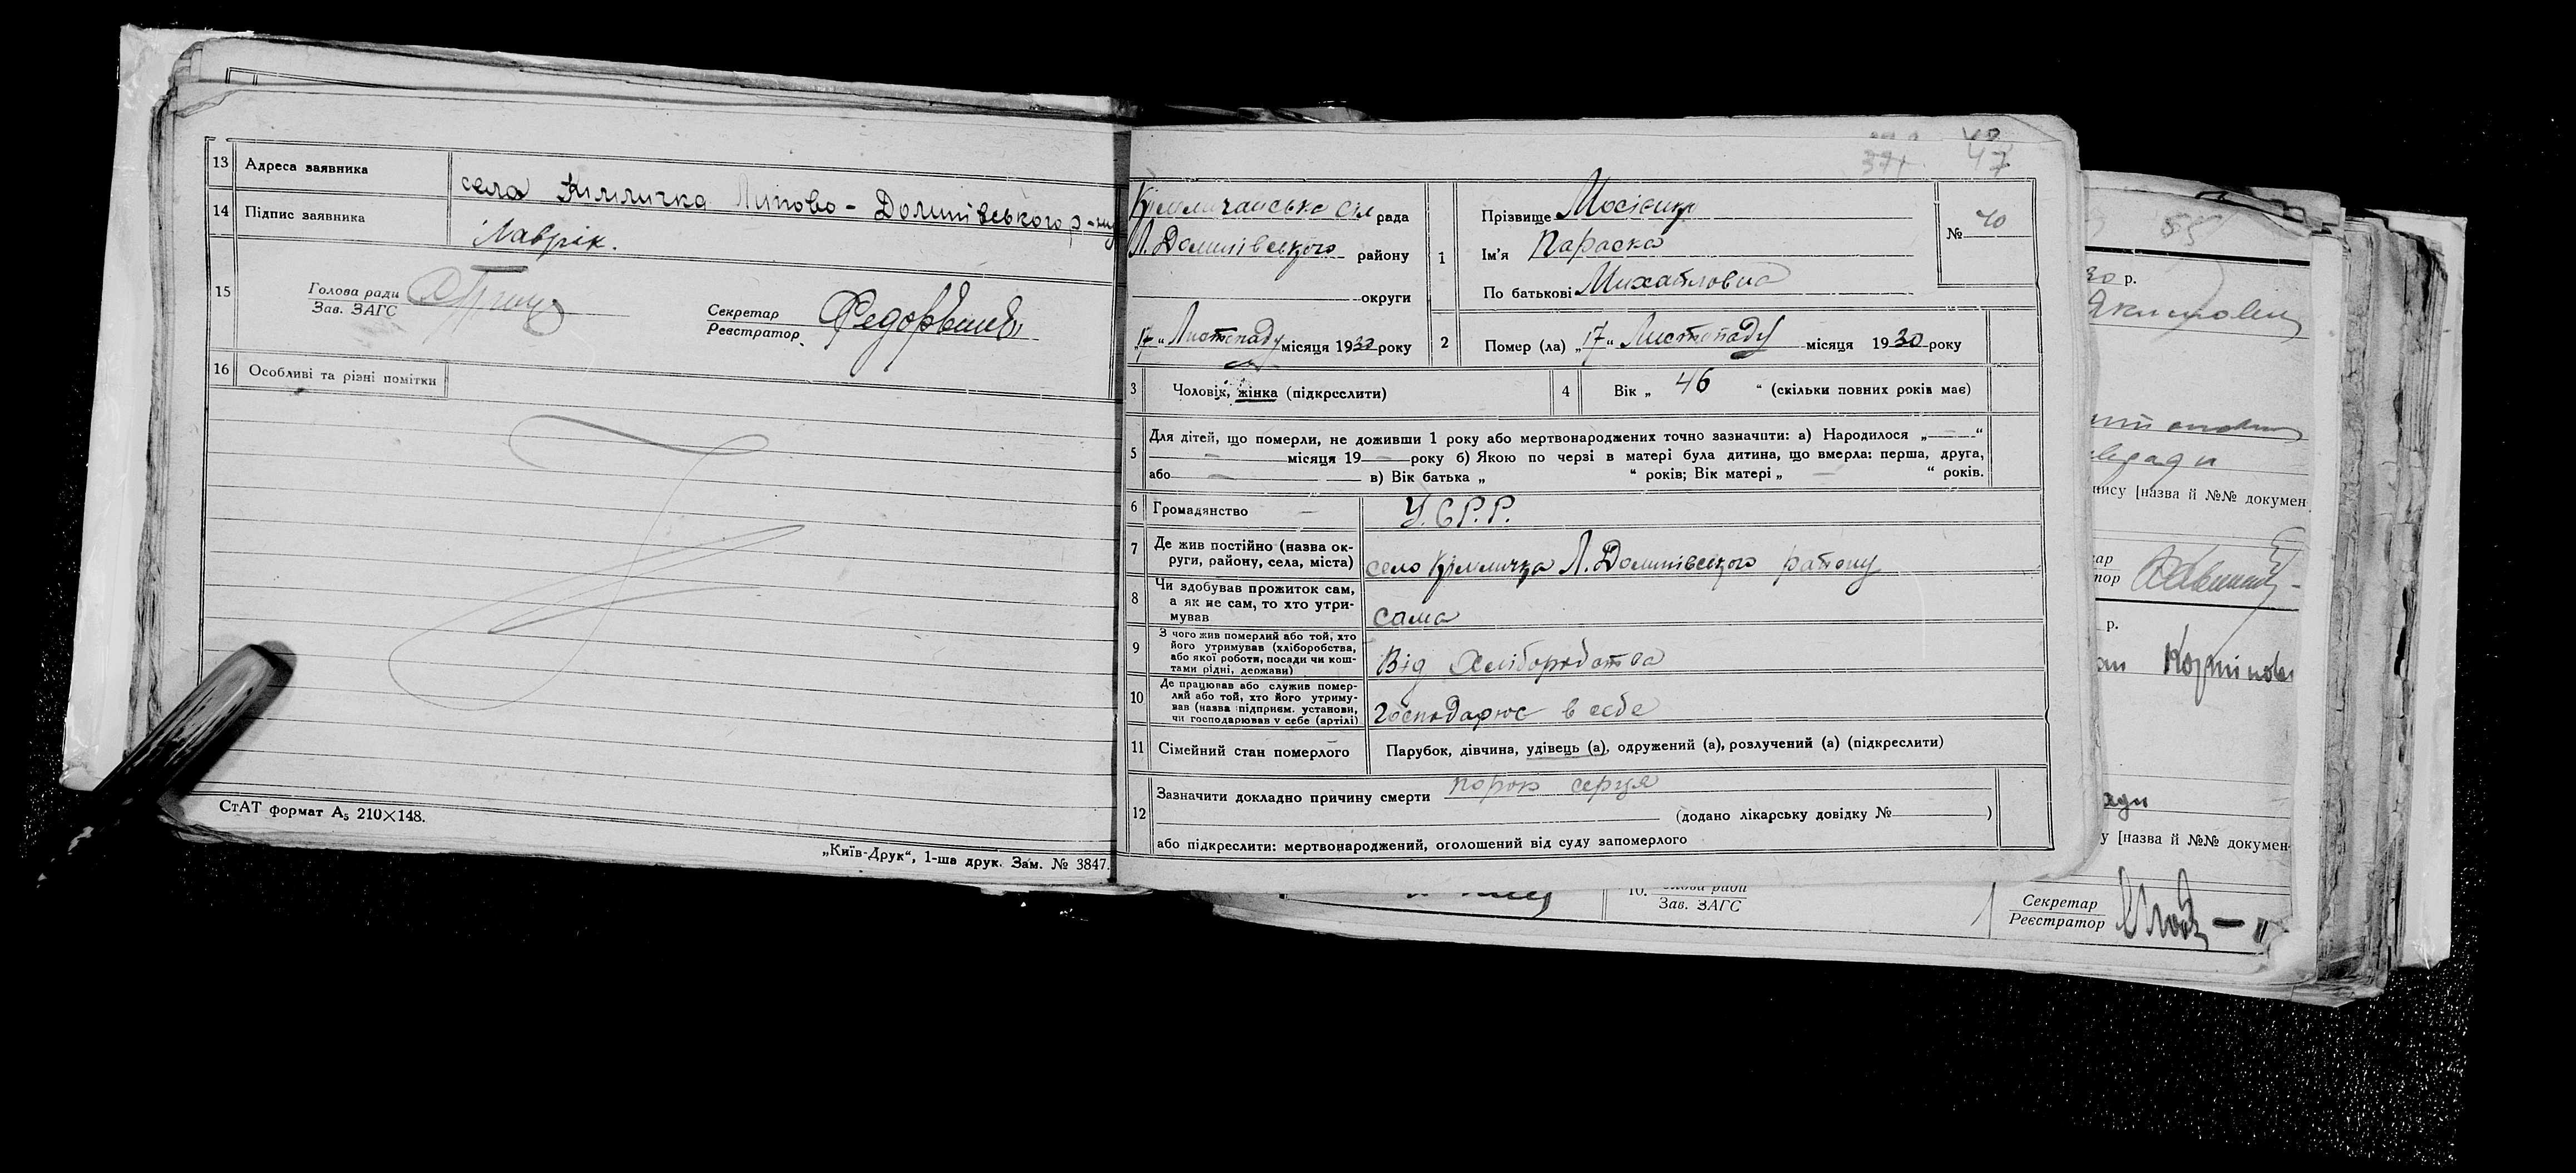 13 Адреса заявника
села Кімличка Липово - Долинівського р-ну
14 Підпис заявника
Лаврік.
15 Голова ради
Зав. ЗАГС
Секретар
Реєстратор
16 Особливі та різні помітки
СтАТ формат А₅ 210×148.
„Київ-Друк“, 1-ша друк. Зам. № 3847.
37 47
Кімличанська сіл рада
Л. Долинівського району
округи
„17“ Листопаду місяця 1930 року
1 Прізвище
Ім'я Параска
По батькові Михайловна
№ 40
2 Помер (ла) „17“ Листопаду місяця 1930 року
3 Чоловік, жінка (підкреслити)
4 Вік „ 46 “ (скільки повних років має)
5 Для дітей, що померли, не доживши 1 року або мертвонароджених точно зазначити: а) Народилося „—“
— місяця 19 — року б) Якою по черзі в матері була дитина, що вмерла: перша, друга,
або — в) Вік батька „ “ років; Вік матері „ — “ років.
6 Громадянство — У.С.Р.Р.
7 Де жив постійно (назва ок-
руги, району, села, міста) село Кімличка Л. Долинівського району
8 Чи здобував прожиток сам,
а як не сам, то хто утри-
мував сама
9 З чого жив померлий або той, хто
його утримував (хліборобства,
або якої роботи, посади чи кош-
тами рідні, держави) Від хліборобства
10 Де працював або служив помер-
лий або той, хто його утриму-
вав (назва підприєм. установи,
чи господарював у себе (артілі) Господарює в себе
11 Сімейний стан померлого Парубок, дівчина, удівець (а), одружений (а), розлучений (а) (підкреслити)
12 Зазначити докладно причину смерти порок серця
(додано лікарську довідку № )
або підкреслити: мертвонароджений, оголошений від суду запомерлого
55
30 р.
пису [назва й №№ докумен
р.
у [назва й №№ докумен-
10.
Зав. ЗАГС
Секретар
Реєстратор